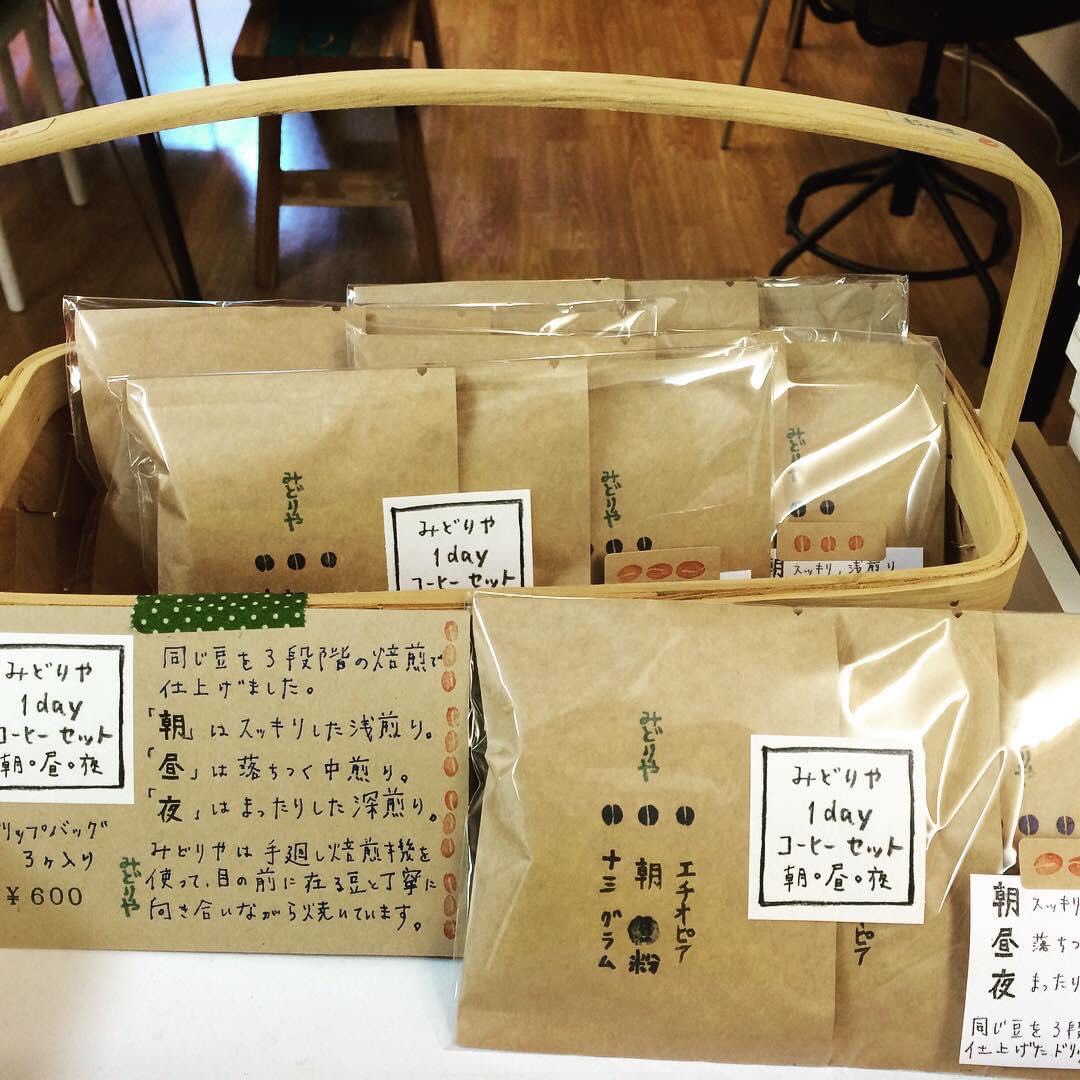 みどりや
みどりや
みどりや
みどりや
1day
コーヒーセット
朝 スッキリ,浅煎り
みどりや
1day
コーヒーセット
朝。昼。夜
ドリップバッグ
3ヶ入り
¥600
同じ豆を3段階の焙煎で
仕上げました。
「朝」はスッキリした浅煎り。
「昼」は落ちつく中煎り。
「夜」はまったりした深煎り。
みどりやは手廻し焙煎機を
使って、目の前に在る豆と丁寧に
向き合いながら焼いています。
みどりや
みどりや
エチオピア
朝 粉
十三グラム
みどりや
1day
コーヒーセット
朝。昼。夜
ピア
朝 スッキリ
昼 落ちつ
夜 まったり
同じ豆を3段
仕上げたドリッ